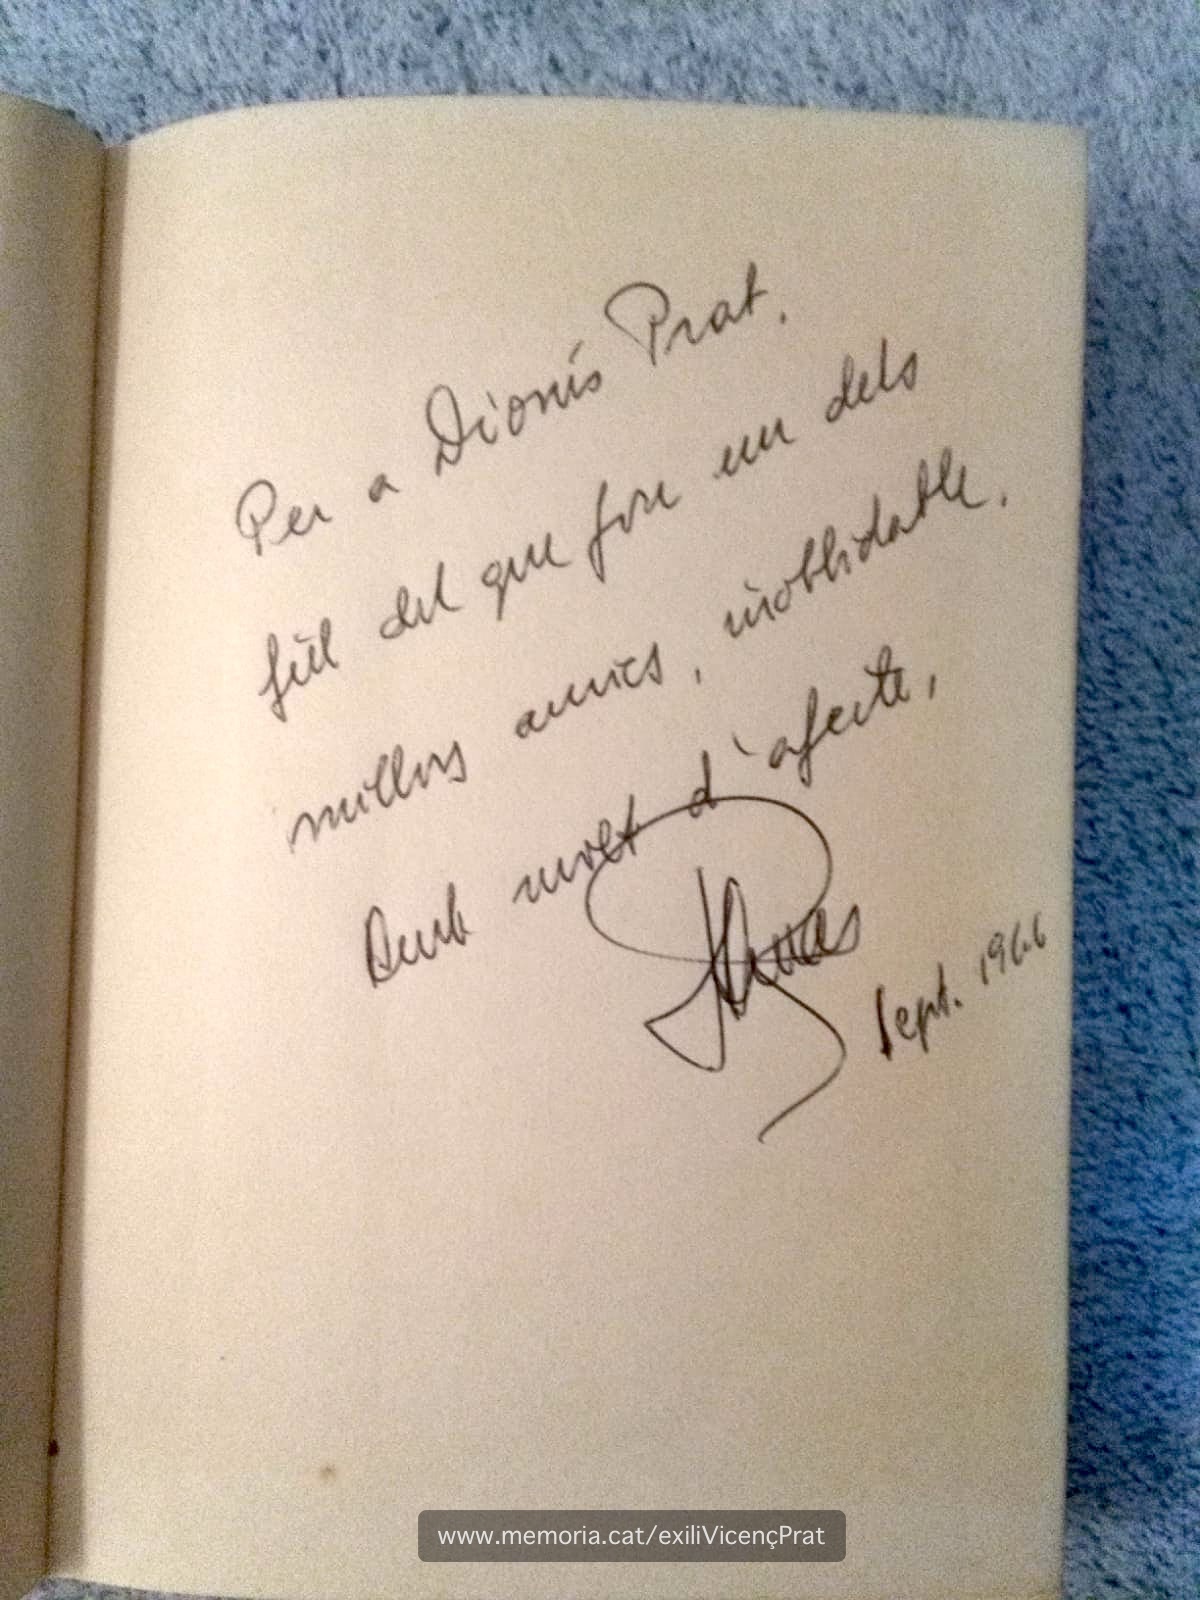 Per a Dionís Prat,
fill del que fou un dels
millors amics, inoblidable.
Amb molt d'afecte,
Sept. 1966
www.memoria.cat/exiliVicençPrat